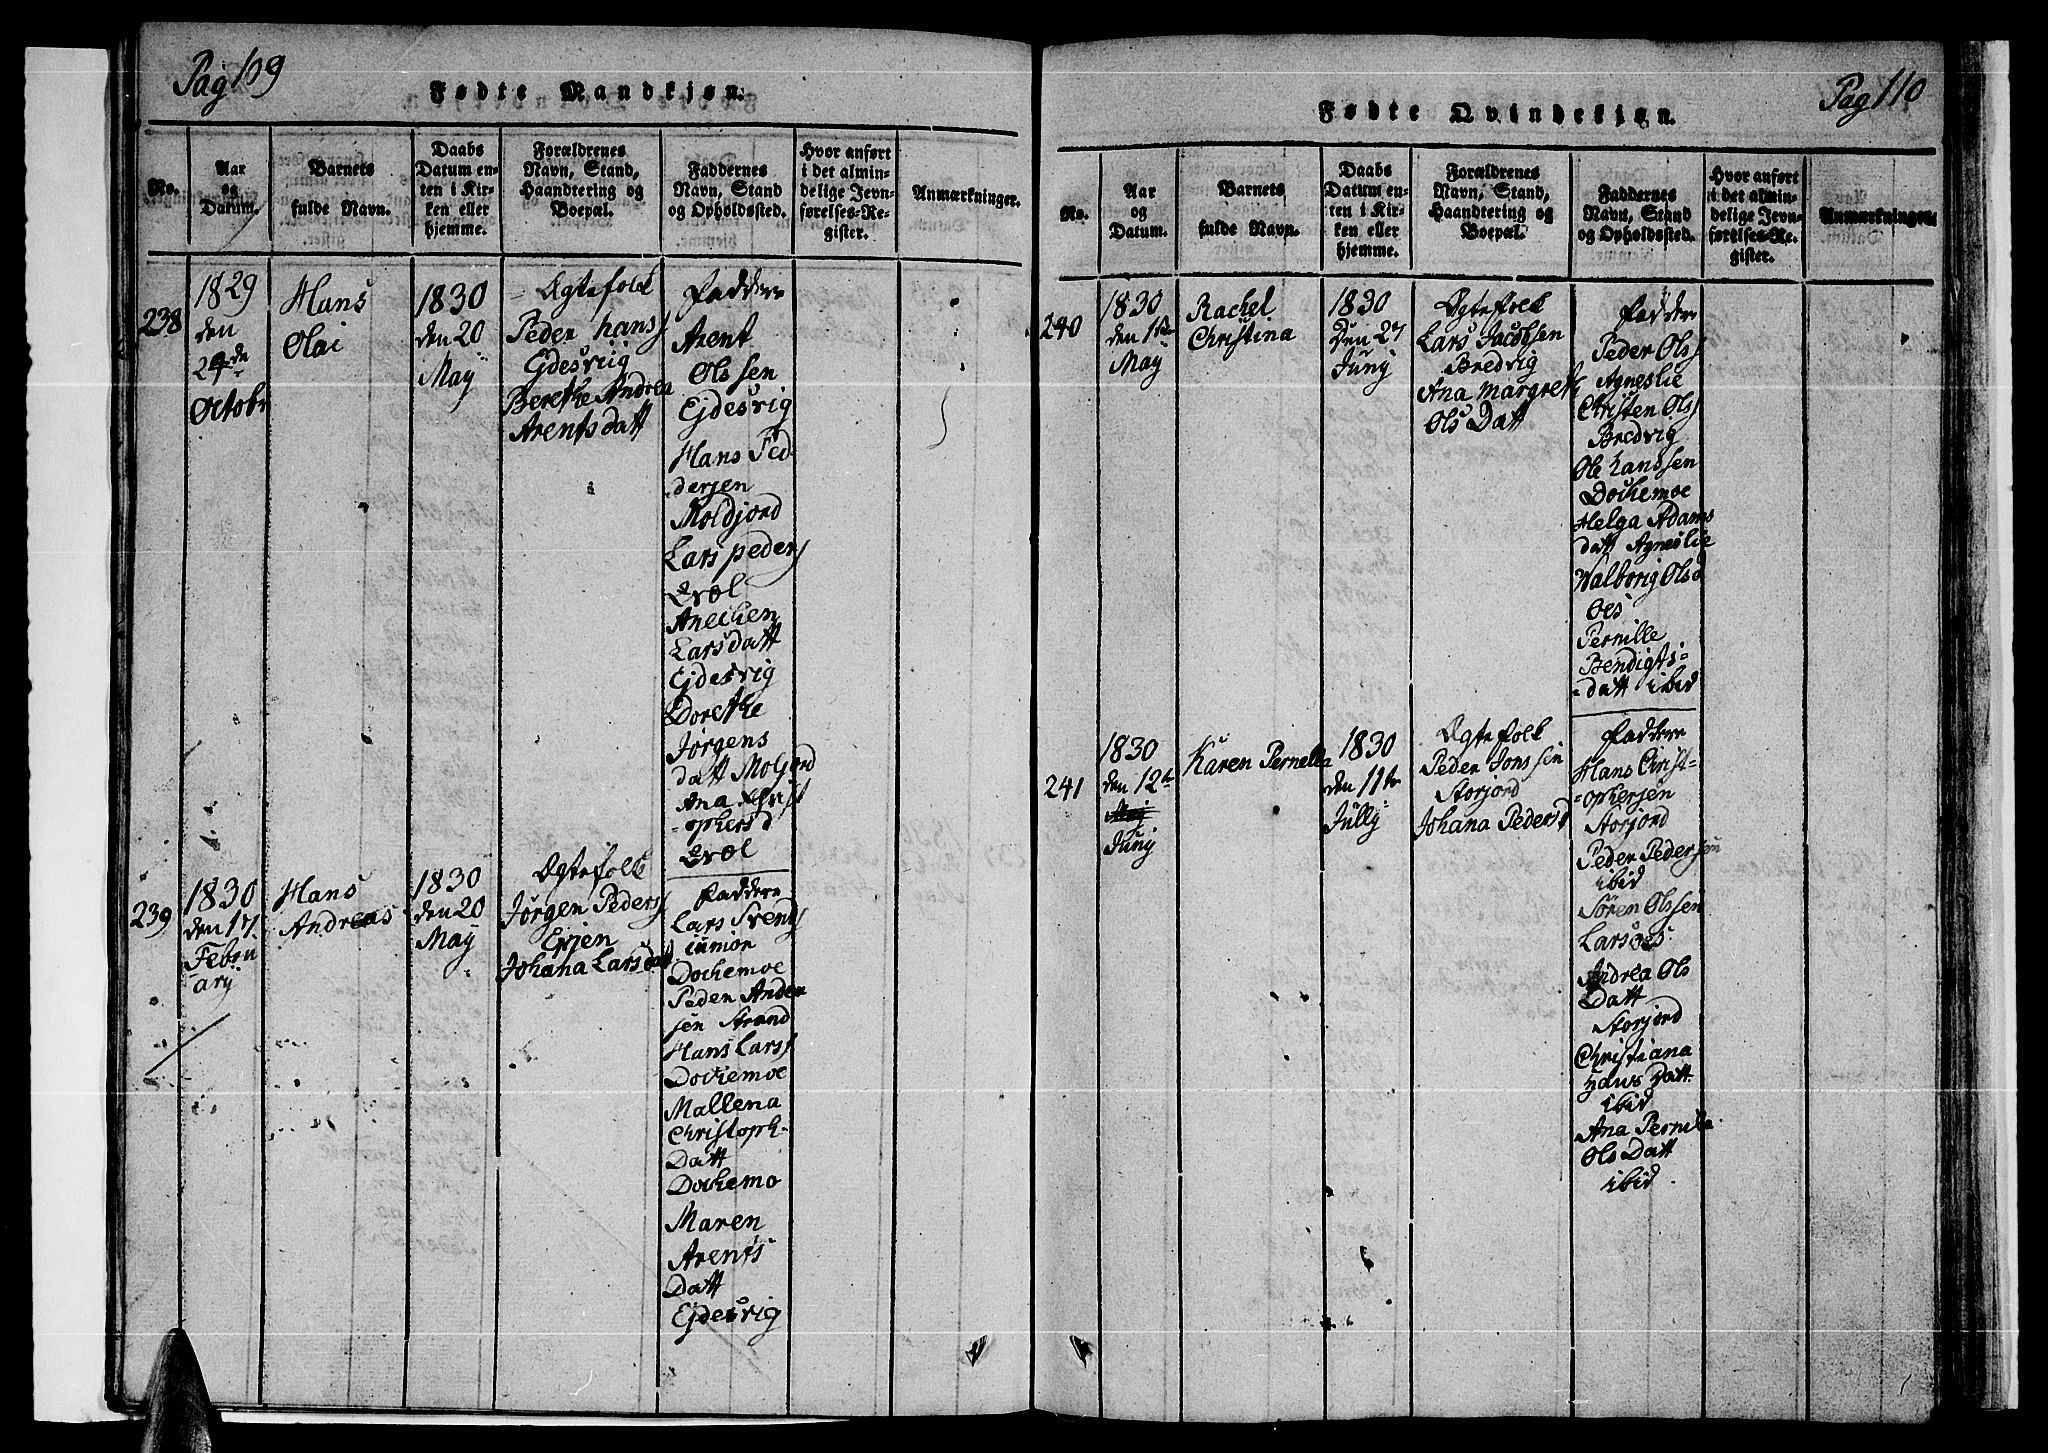 Pag 109
Fødte Mandkjøn.
No.
Aar
og
Datum.
Barnets
fulde Navn.
Daabs
Datum en-
ten i Kir-
ken eller
hjemme.
Forældrenes
Navn, Stand,
Haandtering og
Boepæl.
Faddernes
Navn, Stand
og Opholdssted.
Hvor anført
i det almin-
delige Jevn-
førelses-Re-
gister.
Anmærkninger.
238
1829
den
24de
Octobr
Hans
Olai
1830
den 20
May
Ægtefolk
Peder hanss
Ejdesviig
Berethe Andrea
Arentsdatt
Faddere
Arent
Olssen
Ejdesvig
Hans Ped
dersen
Moldjord
Lars peders
Evæl
Anechen
Larsdatt
Ejdesvig
Dorethe
Jørgens
datt Moljord
Ana Christ
ophersd
Evæl
239
1830
den 17
Febru
ary
Hans
Andreas
1830
den 20
May
Ægtefolk
Jørgen Peders
Evjen
Johana Larsdatt
Faddere
Lars Svends
iunior
Dochemoe
Peder Ander
sen Strand
Hans Larss
Dochemoe
Mallena
Christoph-
Datt
Dochemo
Maren
Arents
Datt
Ejdesvig
Pag 110
Fødte Qvindekjøn.
No.
Aar
og
Datum.
Barnets
fulde Navn.
Daabs
Datum en-
ten i Kir-
ken eller
hjemme.
Forældrenes
Navn, Stand,
Haandtering og
Boepæl.
Faddernes
Navn, Stand
og Opholdssted.
Hvor anført
i det almin-
delige Jevn-
førelses-Re-
gister.
Anmærkninger.
240
1830
den 1ste
May
Rachel
Christina
1830
Den 27
Juny
Ægtefolk
Lars Jacobsen
Bredvig
Ana Margreth
Ols Datt
Faddere
Peder Olss
Agneslie
Christen Olss
Bredvig
Ole hanssen
Dochemoe
Helga Adams
datt Agneslie
Walborig Olsd
Oes
Pernille
Bendigts=
=datt ibid
241
1830
den 12te
May
Juny
Karen Pernella
1830
den 11te
Jully
Ægtefolk
Peder Jonssen
Storjord
Johana Pedersd
Faddere
Hans Christ=
=ophersen
Storjord
Peder Pedersen
ibid
Søren Olssen
Larsoes
Andrea Ols
Datt
Storjord
Christiana
Hans Datt
ibid
Ana Pernilla
Ols Datt
ibid